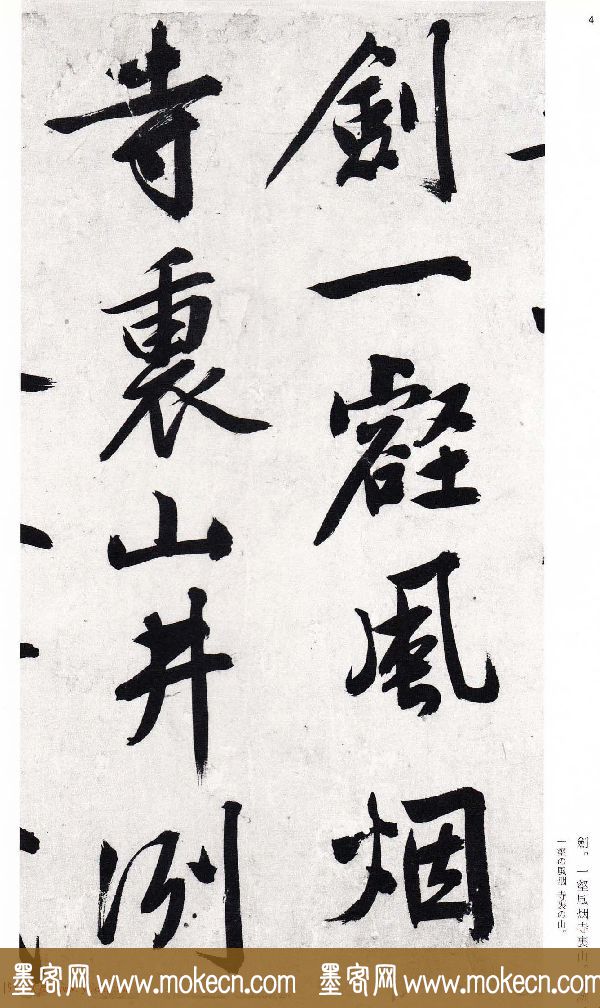 4
劍一壑風烟
寺裏山井洌
劍。一壑風烟寺裏山
一壑の風烟 寺裏の山。
墨客网 www.mokecn.com 墨客网 www.mokecn.com